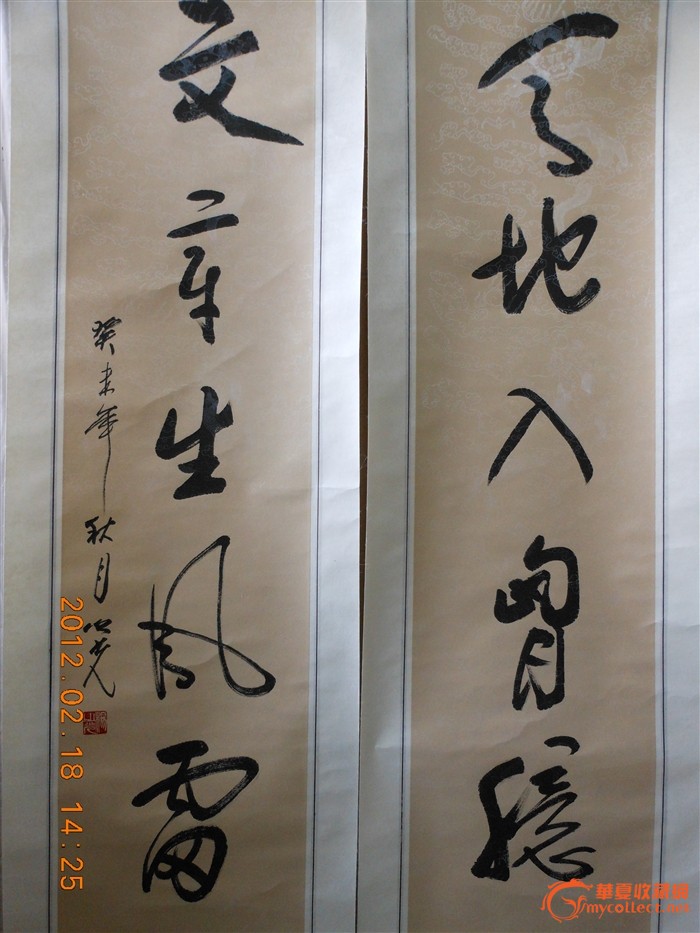 天地入胷臆
文章生风雷
癸未年秋月
2012.02.18 14:25
華夏收藏網
mycollect.net